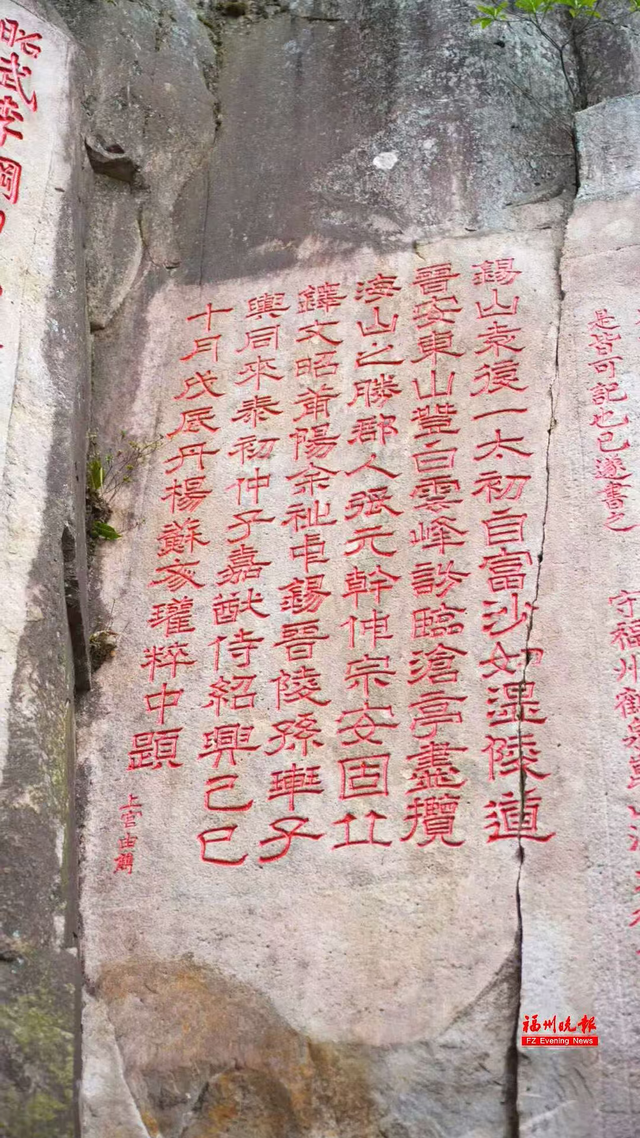 是皆可記也已遂書之
守福州
錫山袁復一太初自富沙如溫陵道
晉安東山登白雲峰臨滄亭盡攬
海山之勝郡人張元幹仲宗安固丘
鐸文昭莆陽余祉中錫晉陵孫子
輿同來泰初仲子嘉猷侍紹興己巳
十月戊辰丹楊蘇文瓘粹中題
上官由鐫
昭武李綱
福州晚報
FZ Evening News